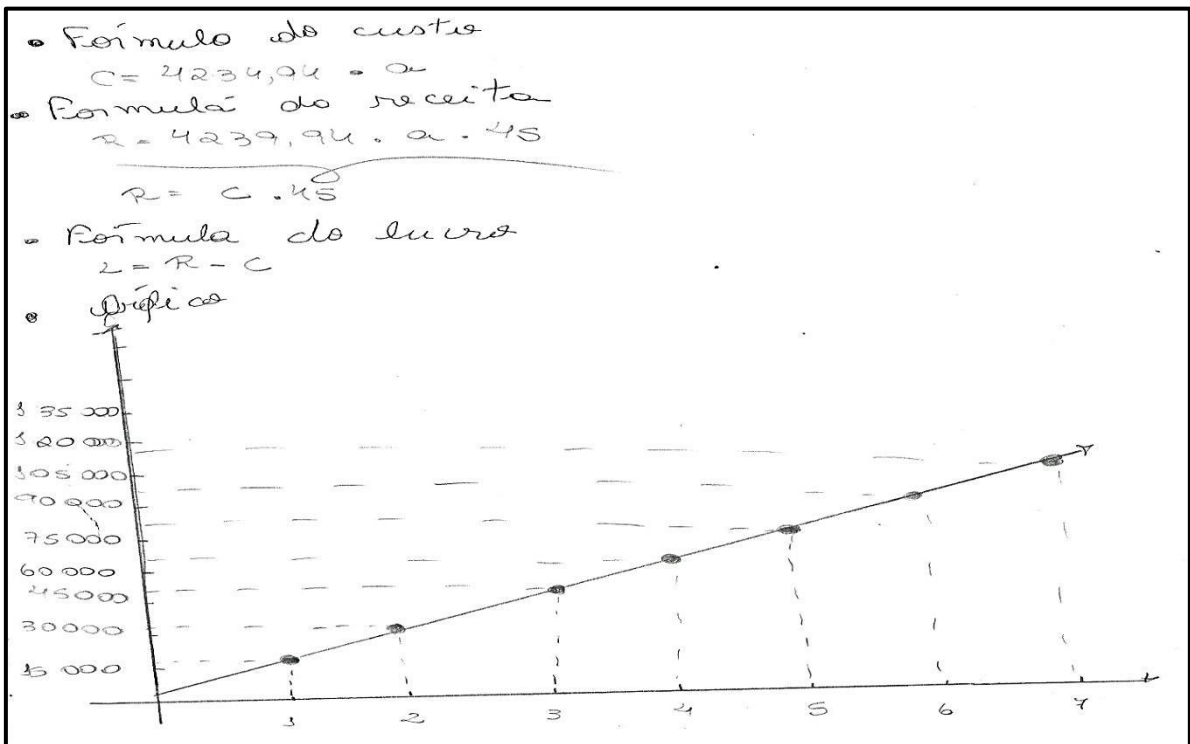 • Fórmula do custo
C = 4234,94 • a
• Fórmula da receita
R = 4239,94 . a . 45
R = C . 45
• Fórmula do lucro
L = R - C
• Gráfico
135 000
120 000
105 000
90 000
75 000
60 000
45000
30000
15 000
1 2 3 4 5 6 7